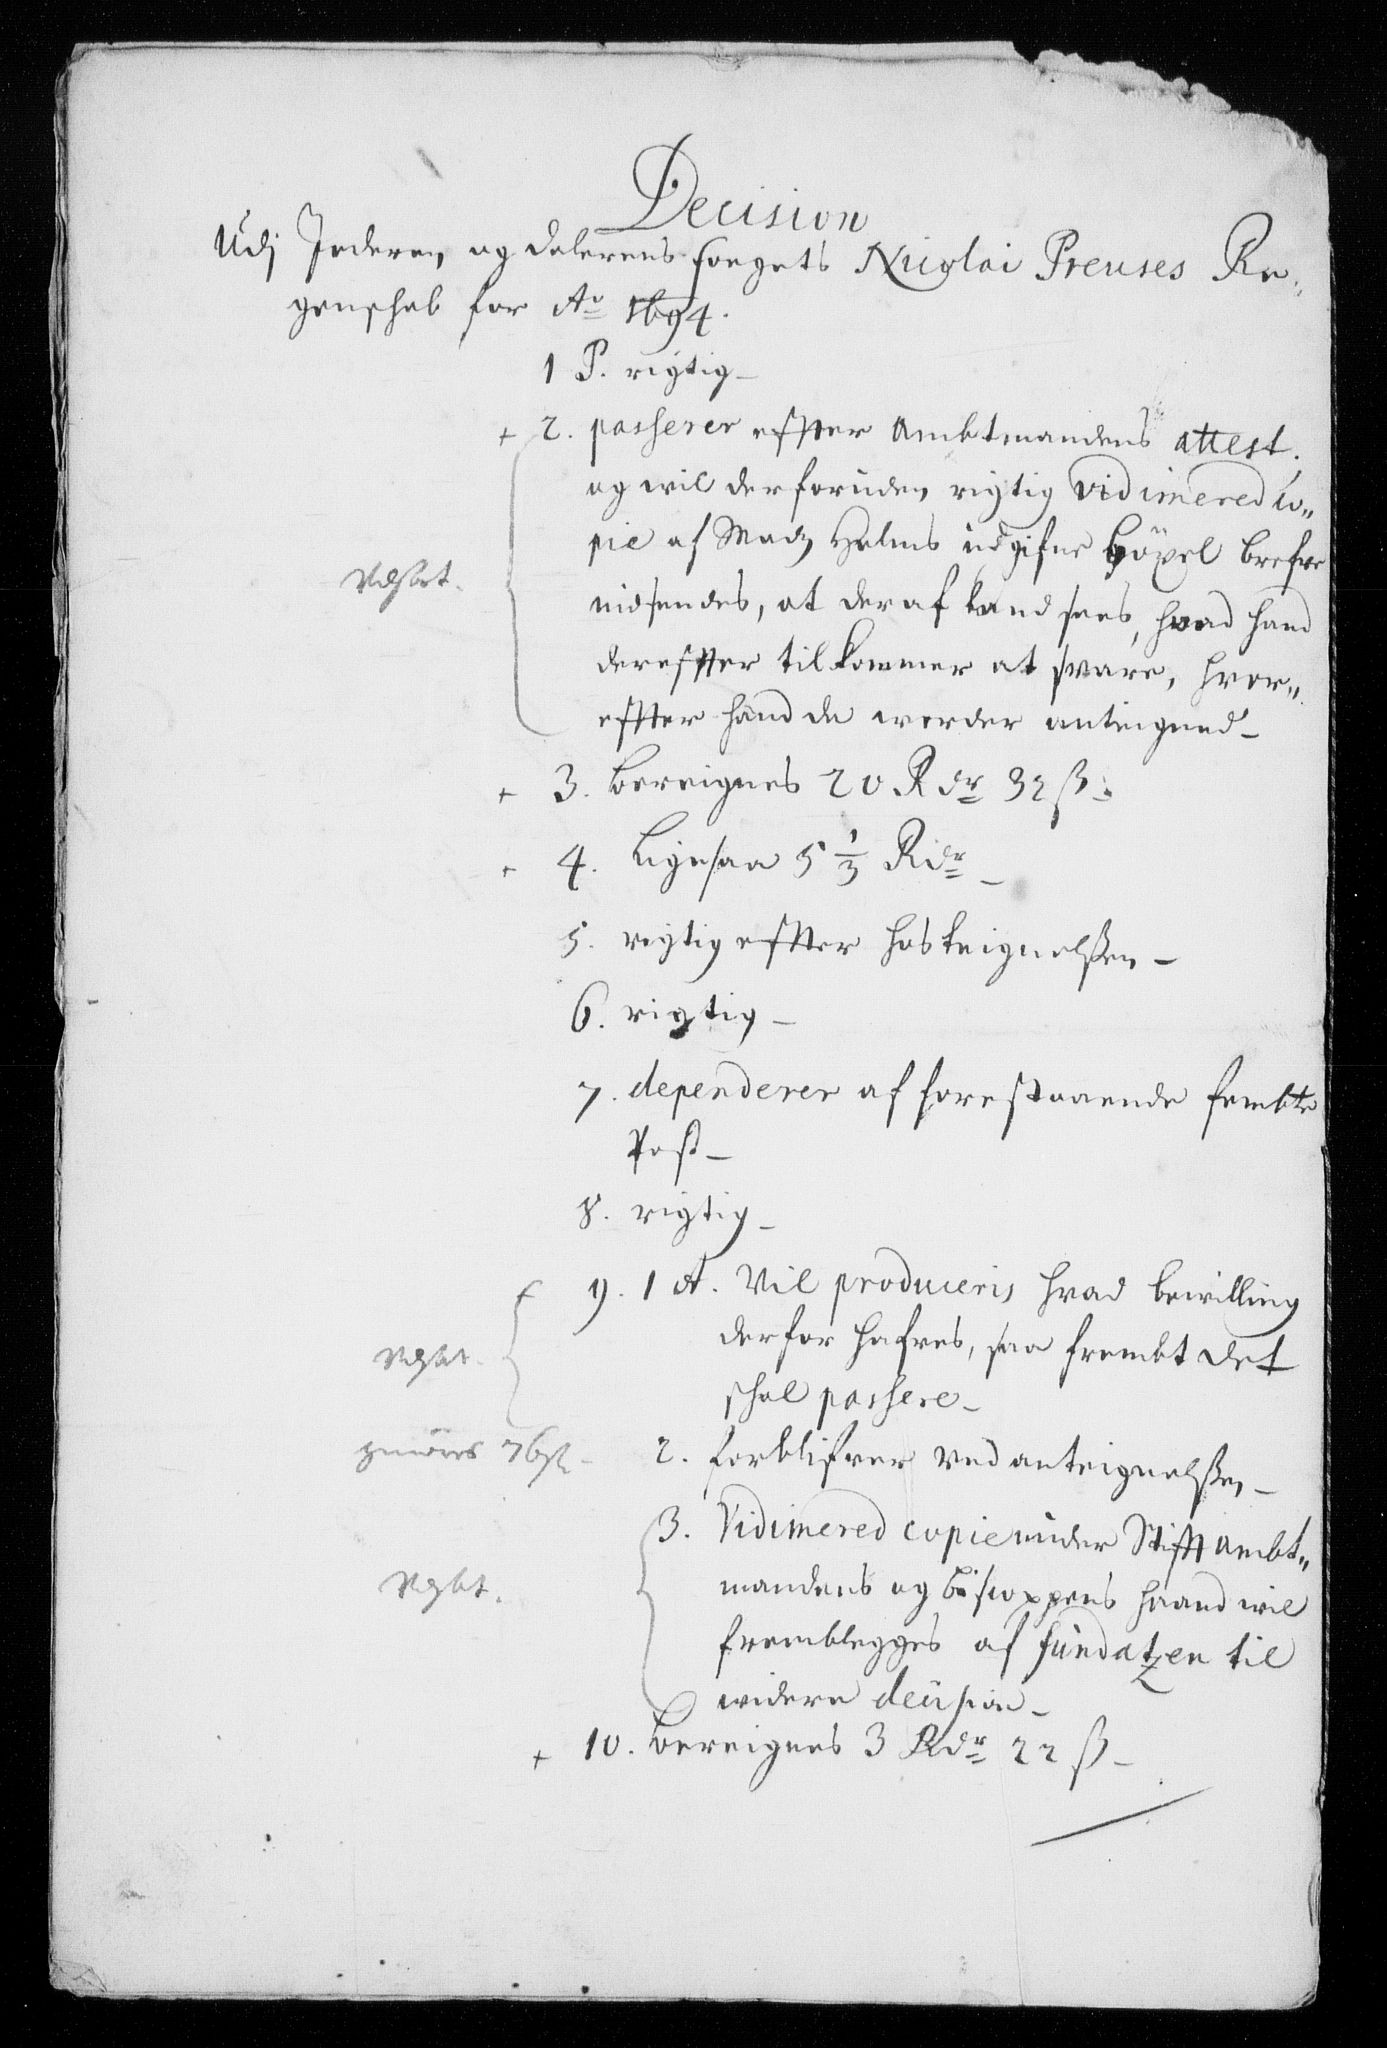 Decision
Udj Jederen og Dalerens fogets Nicolai Preuses Re„
genschab for Ao 1694.
1 P. rigtig –
+ 2. passerer effter Ambtmandens attest,
og wil derforuden rigtig vidimered Co„
pie af Madz Holms udgifne bÿxel brefve
indsendes, at deraf kand sees, hvad hand
dereffter tilkommer at svare, hvor„
effter hand da worder anteigned –
+ 3. bereignes 20 Rdr 32 ß.
+ 4. ligesaa 5 1/3 Rdr –
5. rigtig effter hosteignelßen –
6. rigtig –
7. dependerer af forestaaende fembte
Post –
8. rigtig –
+ 9. 1 A. Vil produceris hvad bewilling
derfor hafves, saa frembt det
schal passere –
2. forblifver ved anteignelßen –
3. Vidimered copie under Stifft Ambt„
mandens og biscoppens haand wil
fremblegges af fundatzen til
widere decision –
+ 10. bereignes 3 Rdr 22 ß –